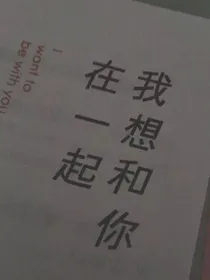 我想和你
在一起
I want to
be with you